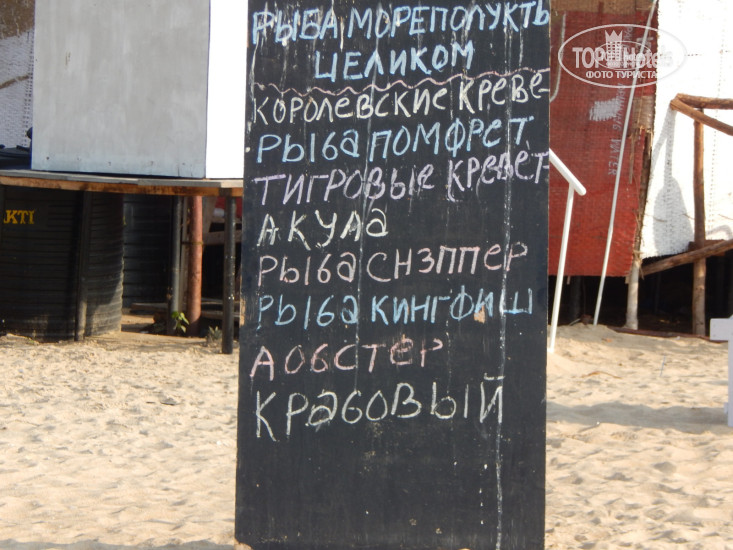 РЫБА МОРЕПОЛУКТЬ
ЦЕЛИКОМ
КОРОЛЕВСКИЕ КРЕВЕ-
РЫБА ПОМФРЕТ
ТИГРОВЫЕ КРЕВЕТ
АКУЛА
РЫБА СНЗППЕР
РЫБА КИНГФИШ
АОБСТЕР
КРАБОВЫЙ
KTI
TOPHotels
ФОТО ТУРИСТА